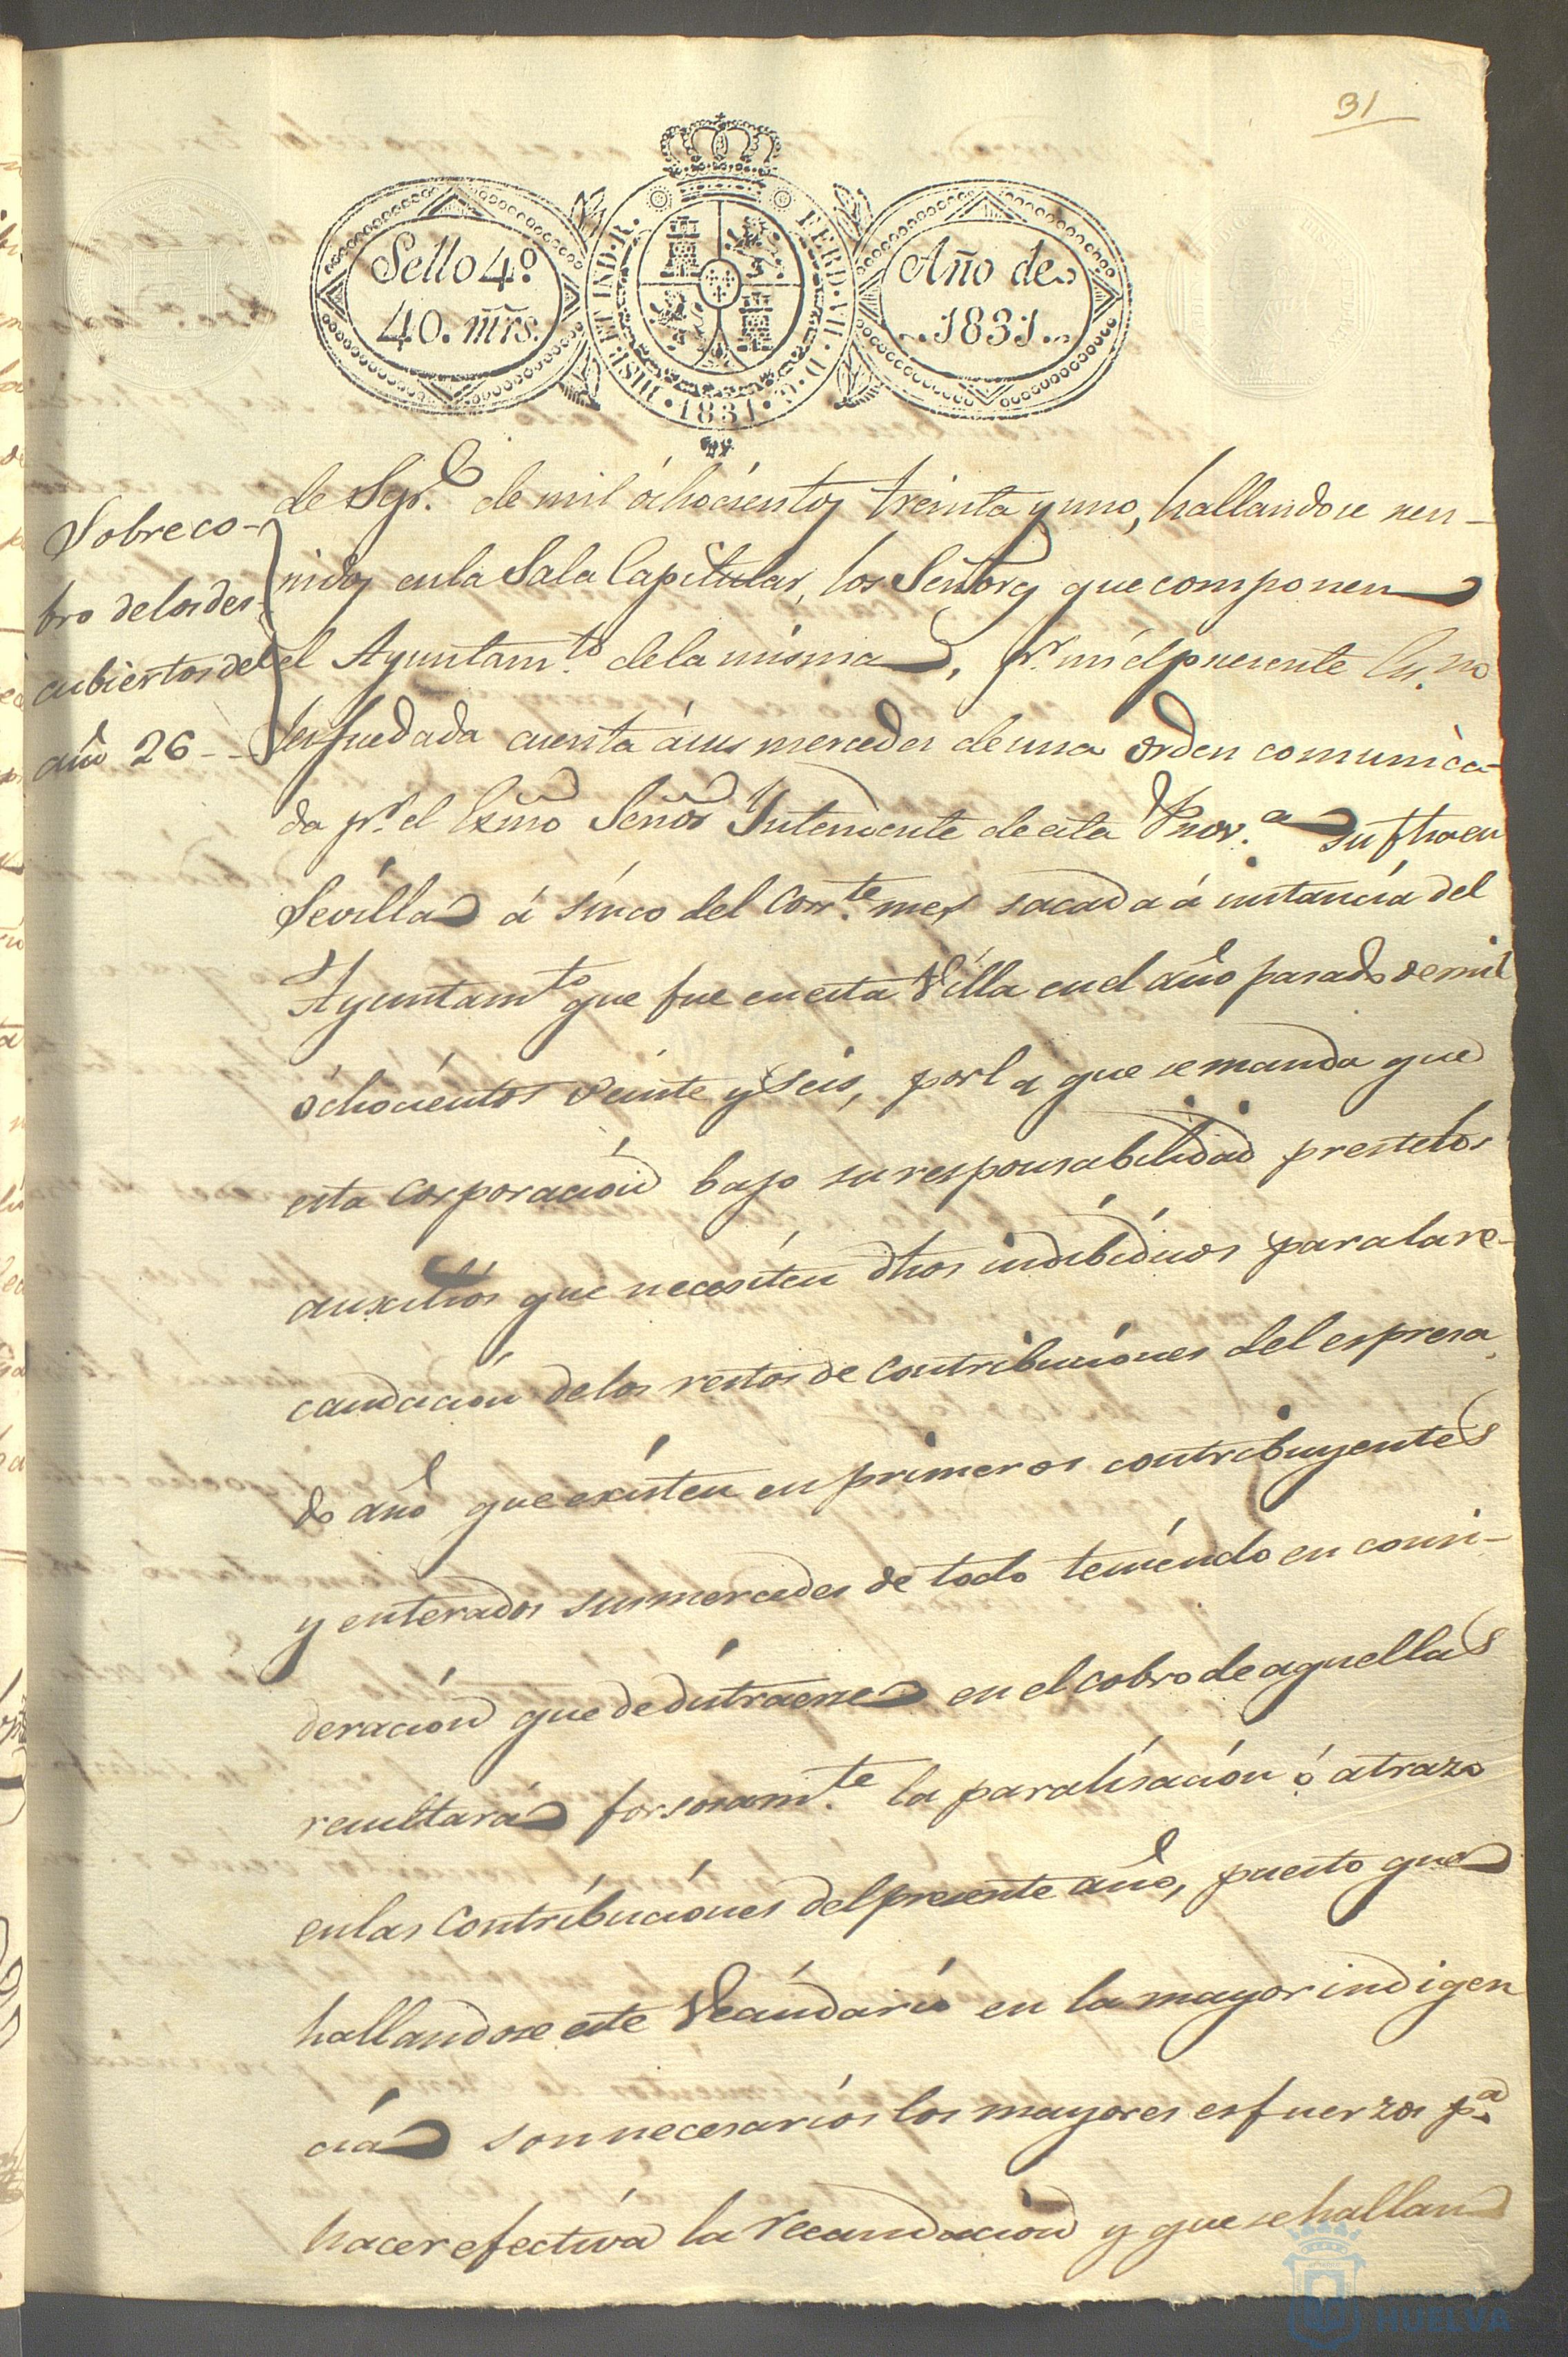 31
Sello 4º
40. mrs.
HISP. ET IND. R. FERD. VII. D. G. 1831
Año de
1831
Sobre co-
bro de los des-
cubiertos del
año 26 --
de Sepe. de mil óchocientos treinta y uno, hallandose reu-
nidos en la Sala Capitular, los Señores que componen
el Ayuntamto. de la misma, pr. mi el presente Es.no
les fue dada cuenta á sus mercedes de una orden comunica-
da pr. el Exmo Señor Yntendente de esta Prov.a su fha en
Sevilla á sinco del Corrte. mes sacada á instancia del
Ayuntamto que fue en esta Villa en el año pasado de mil
óchocientos veinte y seis, por la que se manda que
esta Corporacion bajo su responsabilidad preste los
auxilios que necesiten dhos indibiduos para la re-
caudacion de los restos de Contribuciones del espresa-
do año que existen en primeros contribuyentes
y enterados sus mercedes de todo teniendo en consi-
deracion que de distraerse en el cobro de aquellas
resultará forsosamte. la paralisacion ó atrazo
en las Contribuciones del presente año, puesto que
hallandose este Vecindario en la mayor indigen
cia son necesarios los mayores esfuerzos pa.
hacer efectiva la recaudacion y que se hallan
HUELVA